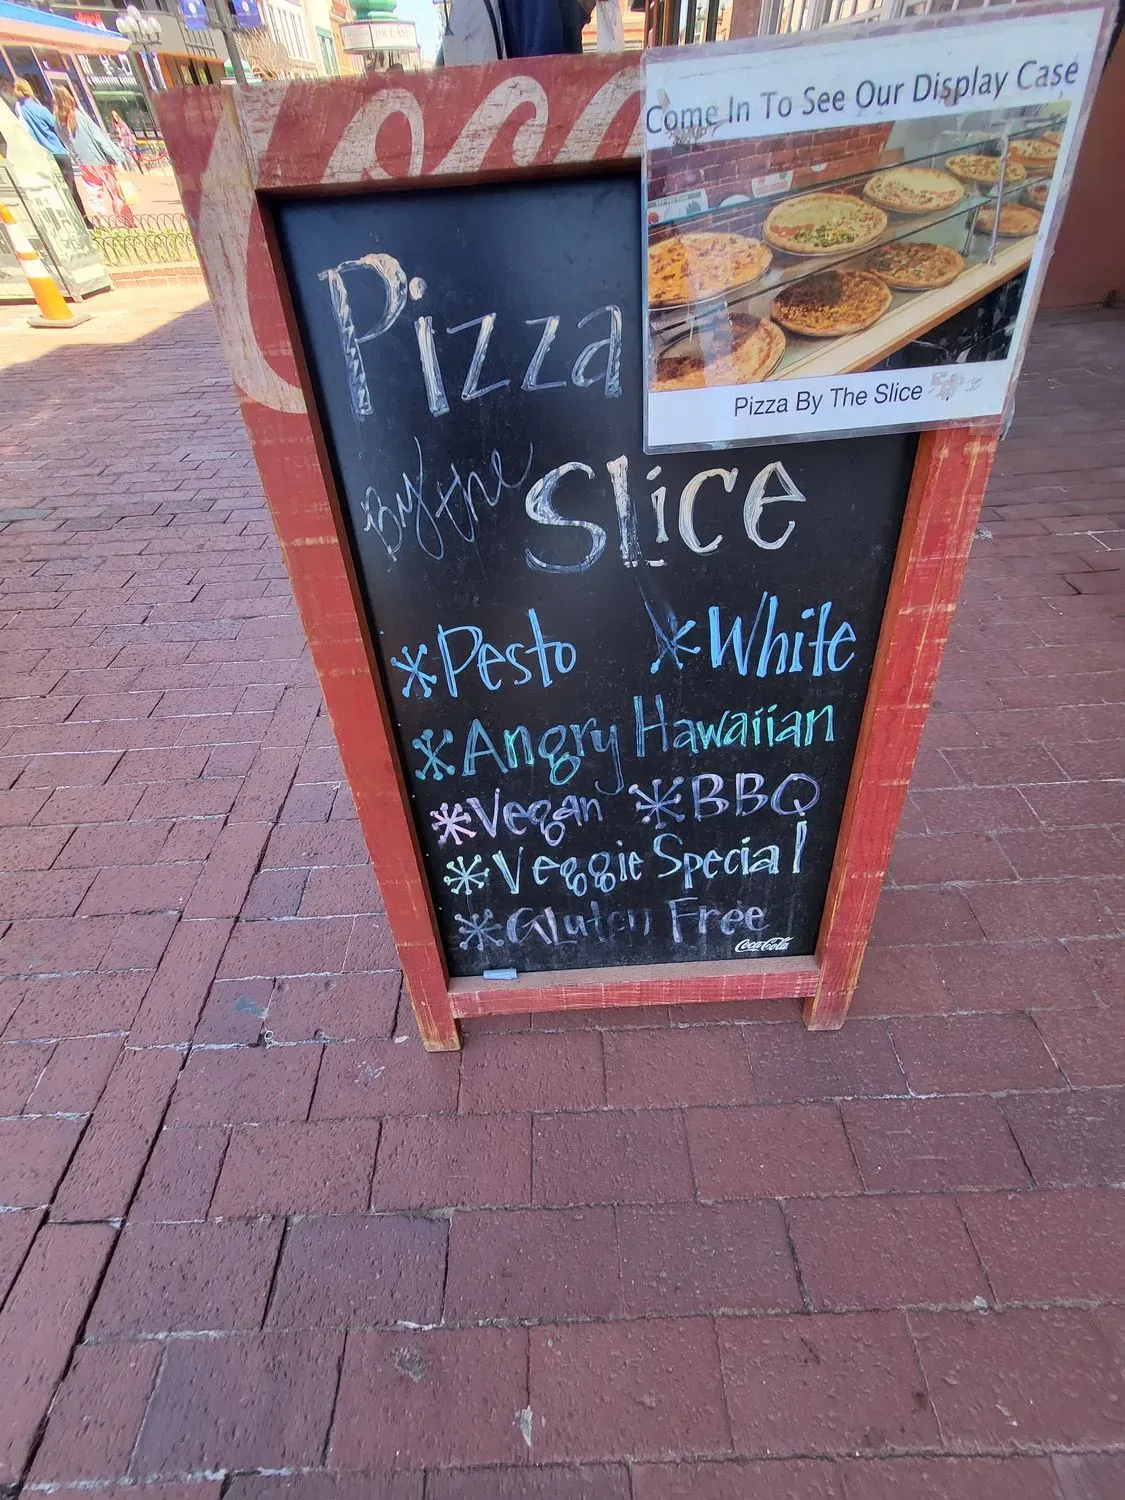 Coca
Come In To See Our Display Case
Pizza By The Slice
Pizza
By the Slice
*Pesto *White
*Angry Hawaiian
*Vegan *BBQ
*Veggie Special
*Gluten Free
Coca-Cola